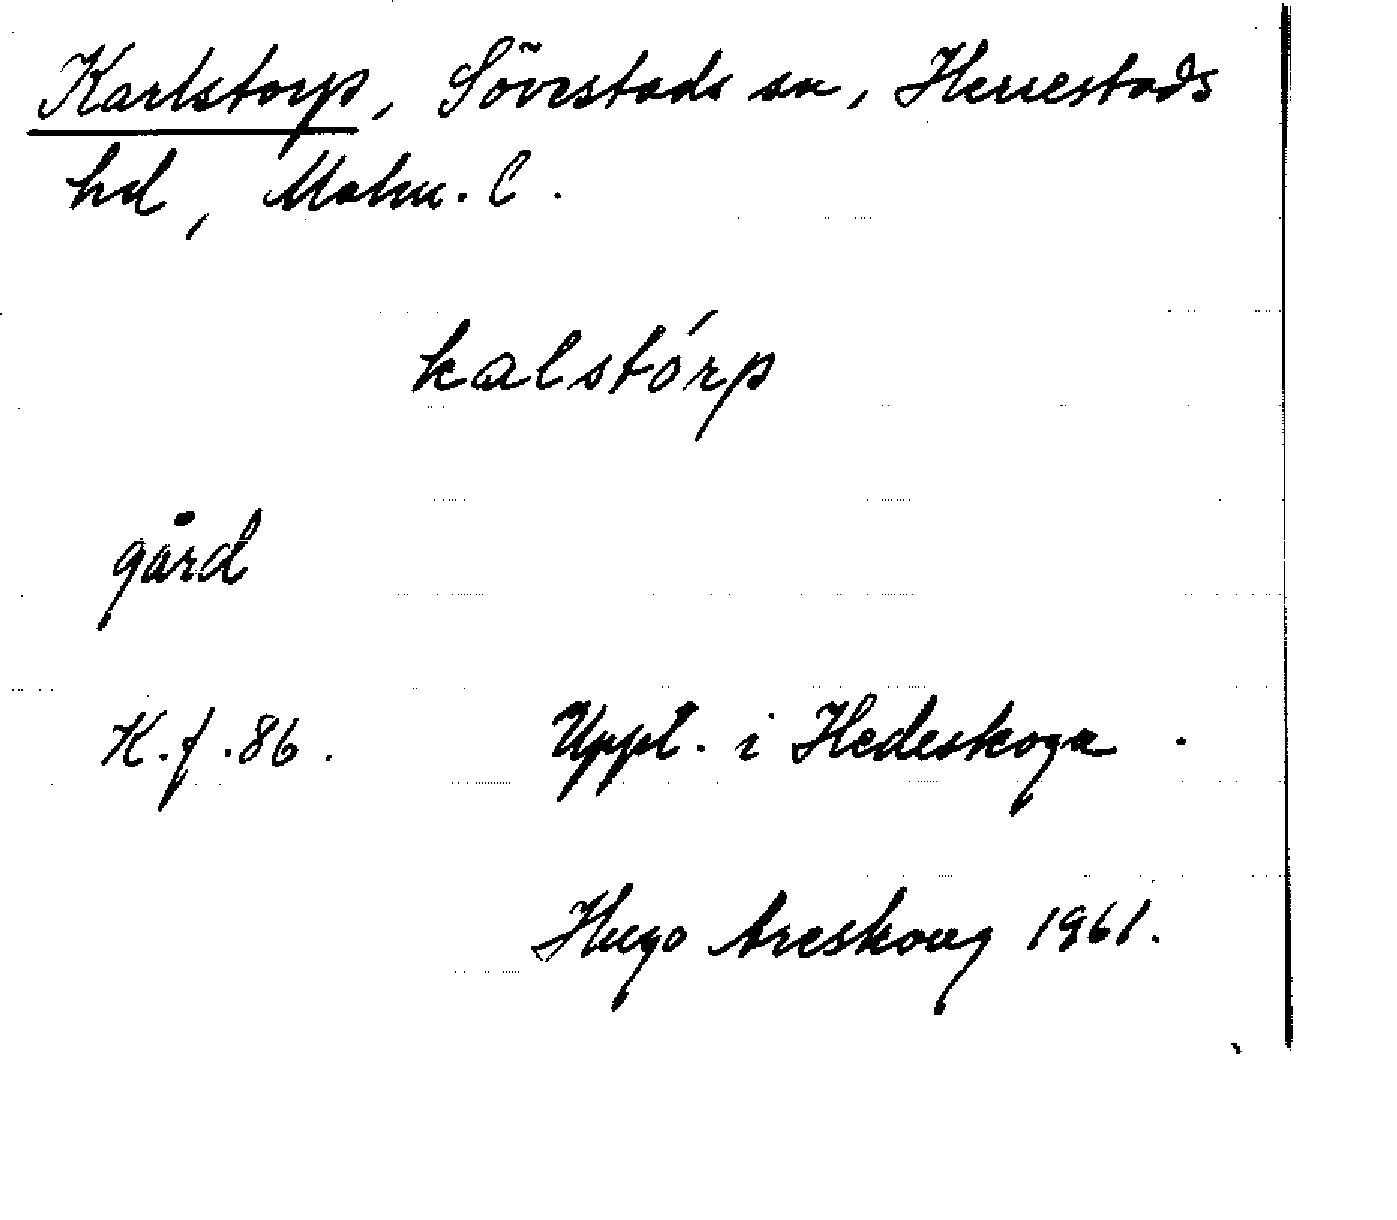 Karlstorp, Sövestads sn, Herrestads
hd, Malm. l.
kalstórp
gård
K.f. 86.
Uppt. i Hedeskoga.
Hugo Areskoug 1961.